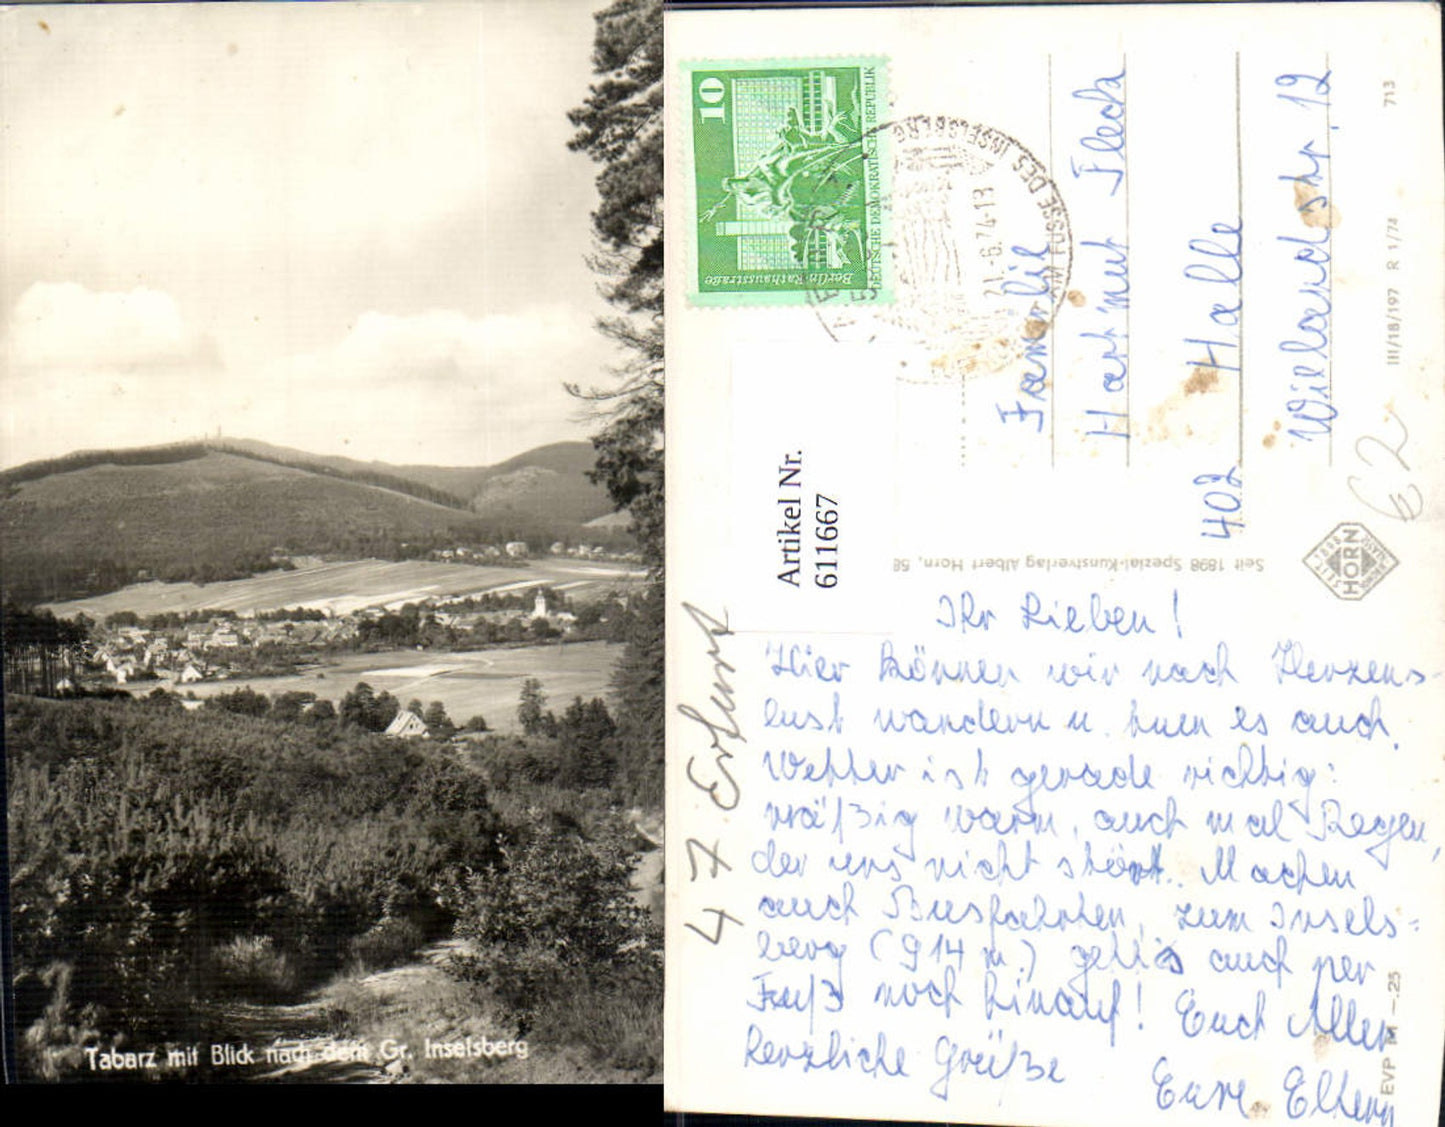 Tabarz mit Blick nach dem Gr. Inselsberg
10
Berlin Rathausstraße
DEUTSCHE DEMOKRATISCHE REPUBLIK
AM FUSSE DES INSELSBERG
21.-6.74-18
Familie
Hartmut Fleck
402 Halle
Wielandstr. 12
713
III/18/197 R 1/74
€2
Artikel Nr.
611667
Seit 1898 Spezial-Kunstverlag Albert Horn, 58
SEIT 1898
HORN
47 Erfurt
Ihr Lieben!
Hier können wir nach Herzens-
lust wandern u. tun es auch.
Wetter ist gerade richtig:
mäßig warm, auch mal Regen,
der uns nicht stört. Machen
auch Busfahrten, zum Insels-
berg (914 m.) geht's auch per
Fuß noch hinauf! Euch Allen
herzliche Grüße
Eure Eltern
EVP M -.25